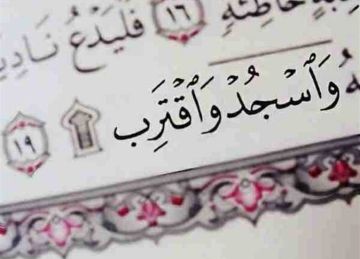 خَاطِئَةٍ ١٦ فَلْيَدْعُ نَادِيَ
وَٱسْجُدْ وَٱقْتَرِب ۩ ١٩